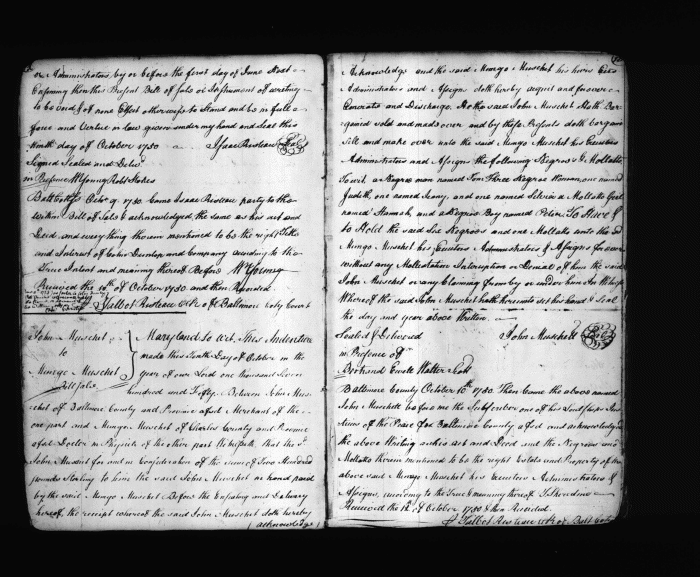 or Administrators, by or before the first day of June Next
Ensueing then this Present Bill of Sale or Instrument of writing
to be void & of none Effect otherwise to Stand and be in full
force and Vertue in Law given under my hand and Seal this
Ninth day of October 1750 Isaac Risteau Seal
Signed Sealed and Deliv.
in Presence Wm Young Robt Stokes
Balt County Octobr 9. 1750. Came Isaac Risteau party to the
within Bill of Sale & acknowledged the same as his act and
Deed and every thing therein mentioned to be the right Title
and Interest of Colin Dunlop and Company according to the
True Intent and meaning thereof Before Wm Young
Received the 10th of October 1750 and then Recorded
Talbot Risteau Clk of Baltimore Coty Court
John Muschet
to
Mungo Muschet
Bill Sale
Maryland to wit. This Indenture
made this Tenth Day of October in the
year of our Lord one thousand Seven
hundred and Fifty. Between John Mus-
chet of Baltimore County and Province afsd Merchant of the
one part and Mungo Muschet of Charles County and Province
afsd Doctor in Physick of the other part Witnesseth that the Sd
John Muschet for and in Consideration of the sume of Two Hundred
pounds Sterling to him the said John Muschet in hand paid
by the said Mungo Muschet Before the Ensealing and Delivery
hereof, the receipt whereof the said John Muschet doth hereby
acknowledge
Acknowledge and the said Mungo Muschet his heirs Exrs
Administrators and Assigns doth hereby acquit and forever
Exonerate and Discharge, He the said John Muschet Hath Bar-
gained sold and made over and by these Presents doth bargain
Sell and make over unto the said Mungo Muschet his Executors
Administrators and Assigns the following Negroes & Mollatto
Towit, a Negroe man named Tom Three Negroe Women, one named
Judith, one named Jeany, and one named Silvia a Mollatto Girl
named Hannah, and a Negroe Boy named Peter To Have &
to Hold the said Six Negroes and one Mollatto unto the sd
Mungo Muschet his Executors Administrators & Assigns for over
without any Mollestation Interuption or Denial of him the said
John Muschet or any Claiming from by or under him In Witness
Whereof the said John Muschet hath hereunto set his hand & Seal
the day and year above Written.
Sealed & Delivered John Muschett Seal
in Presence of
Walter
Baltimore County October 10th 1750. Then Came the above named
John Muschett before me the Subscriber one of his Lordships Jus-
tices of the Peace for Baltimore County afsd and acknowledged
the above Writing as his act and Deed and the Negroes and
Mollatto therein mentioned to be the right Estate and Property of the
above said Mungo Muschet his Executors Administrators &
Assigns, according to the True & meaning thereof T. Sheredine
Received the 10th of October 1750 & then Recorded.
Talbot Risteau Clk of Balt Coty